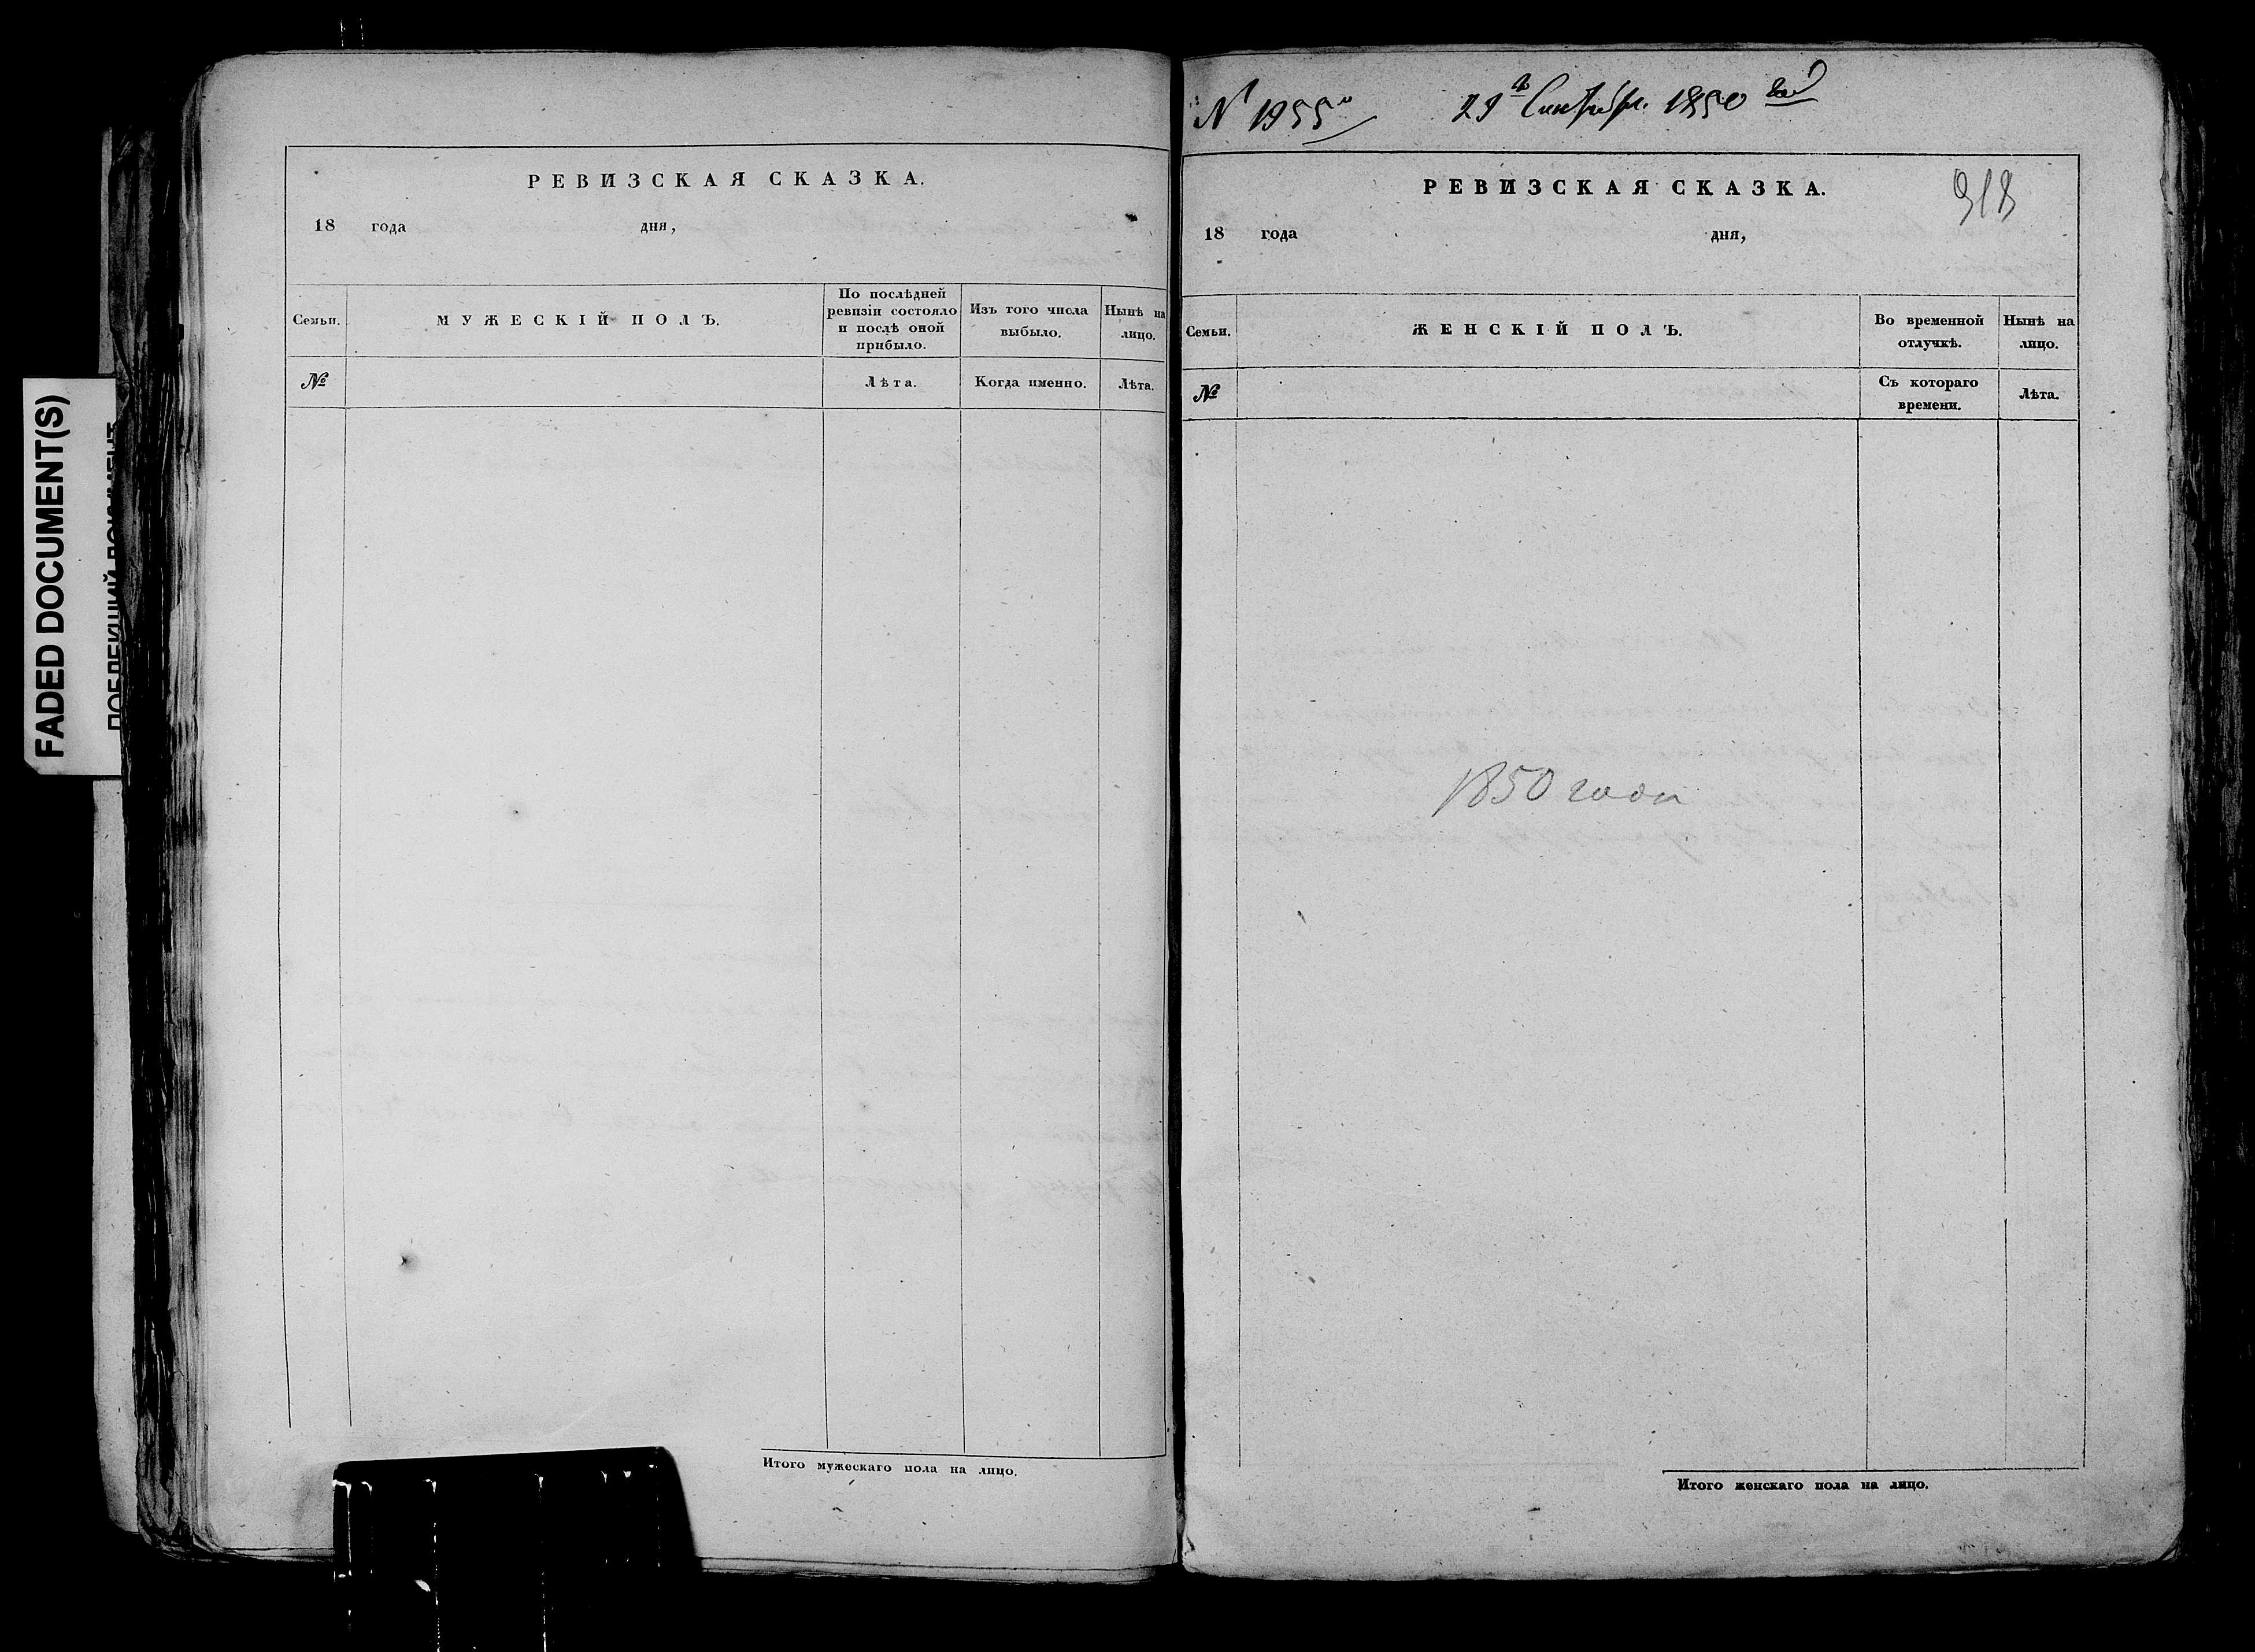 FADED DOCUMENT(S)
РЕВИЗСКАЯ СКАЗКА.
18 года дня,
Семьи. МУЖЕСКІЙ ПОЛЪ. По послѣдней ревизіи состояло и послѣ оной прибыло. Изъ того числа выбыло. Нынѣ на лицо.
№ Лѣта. Когда именно. Лѣта.
Итого мужескаго пола на лицо.
N 1955
29 Сентября 1850
РЕВИЗСКАЯ СКАЗКА.
18 года дня,
Семьи. ЖЕНСКІЙ ПОЛЪ. Во временной отлучкѣ. Нынѣ на лицо.
№ Съ котораго времени. Лѣта.
1850 года
Итого женскаго пола на лицо.